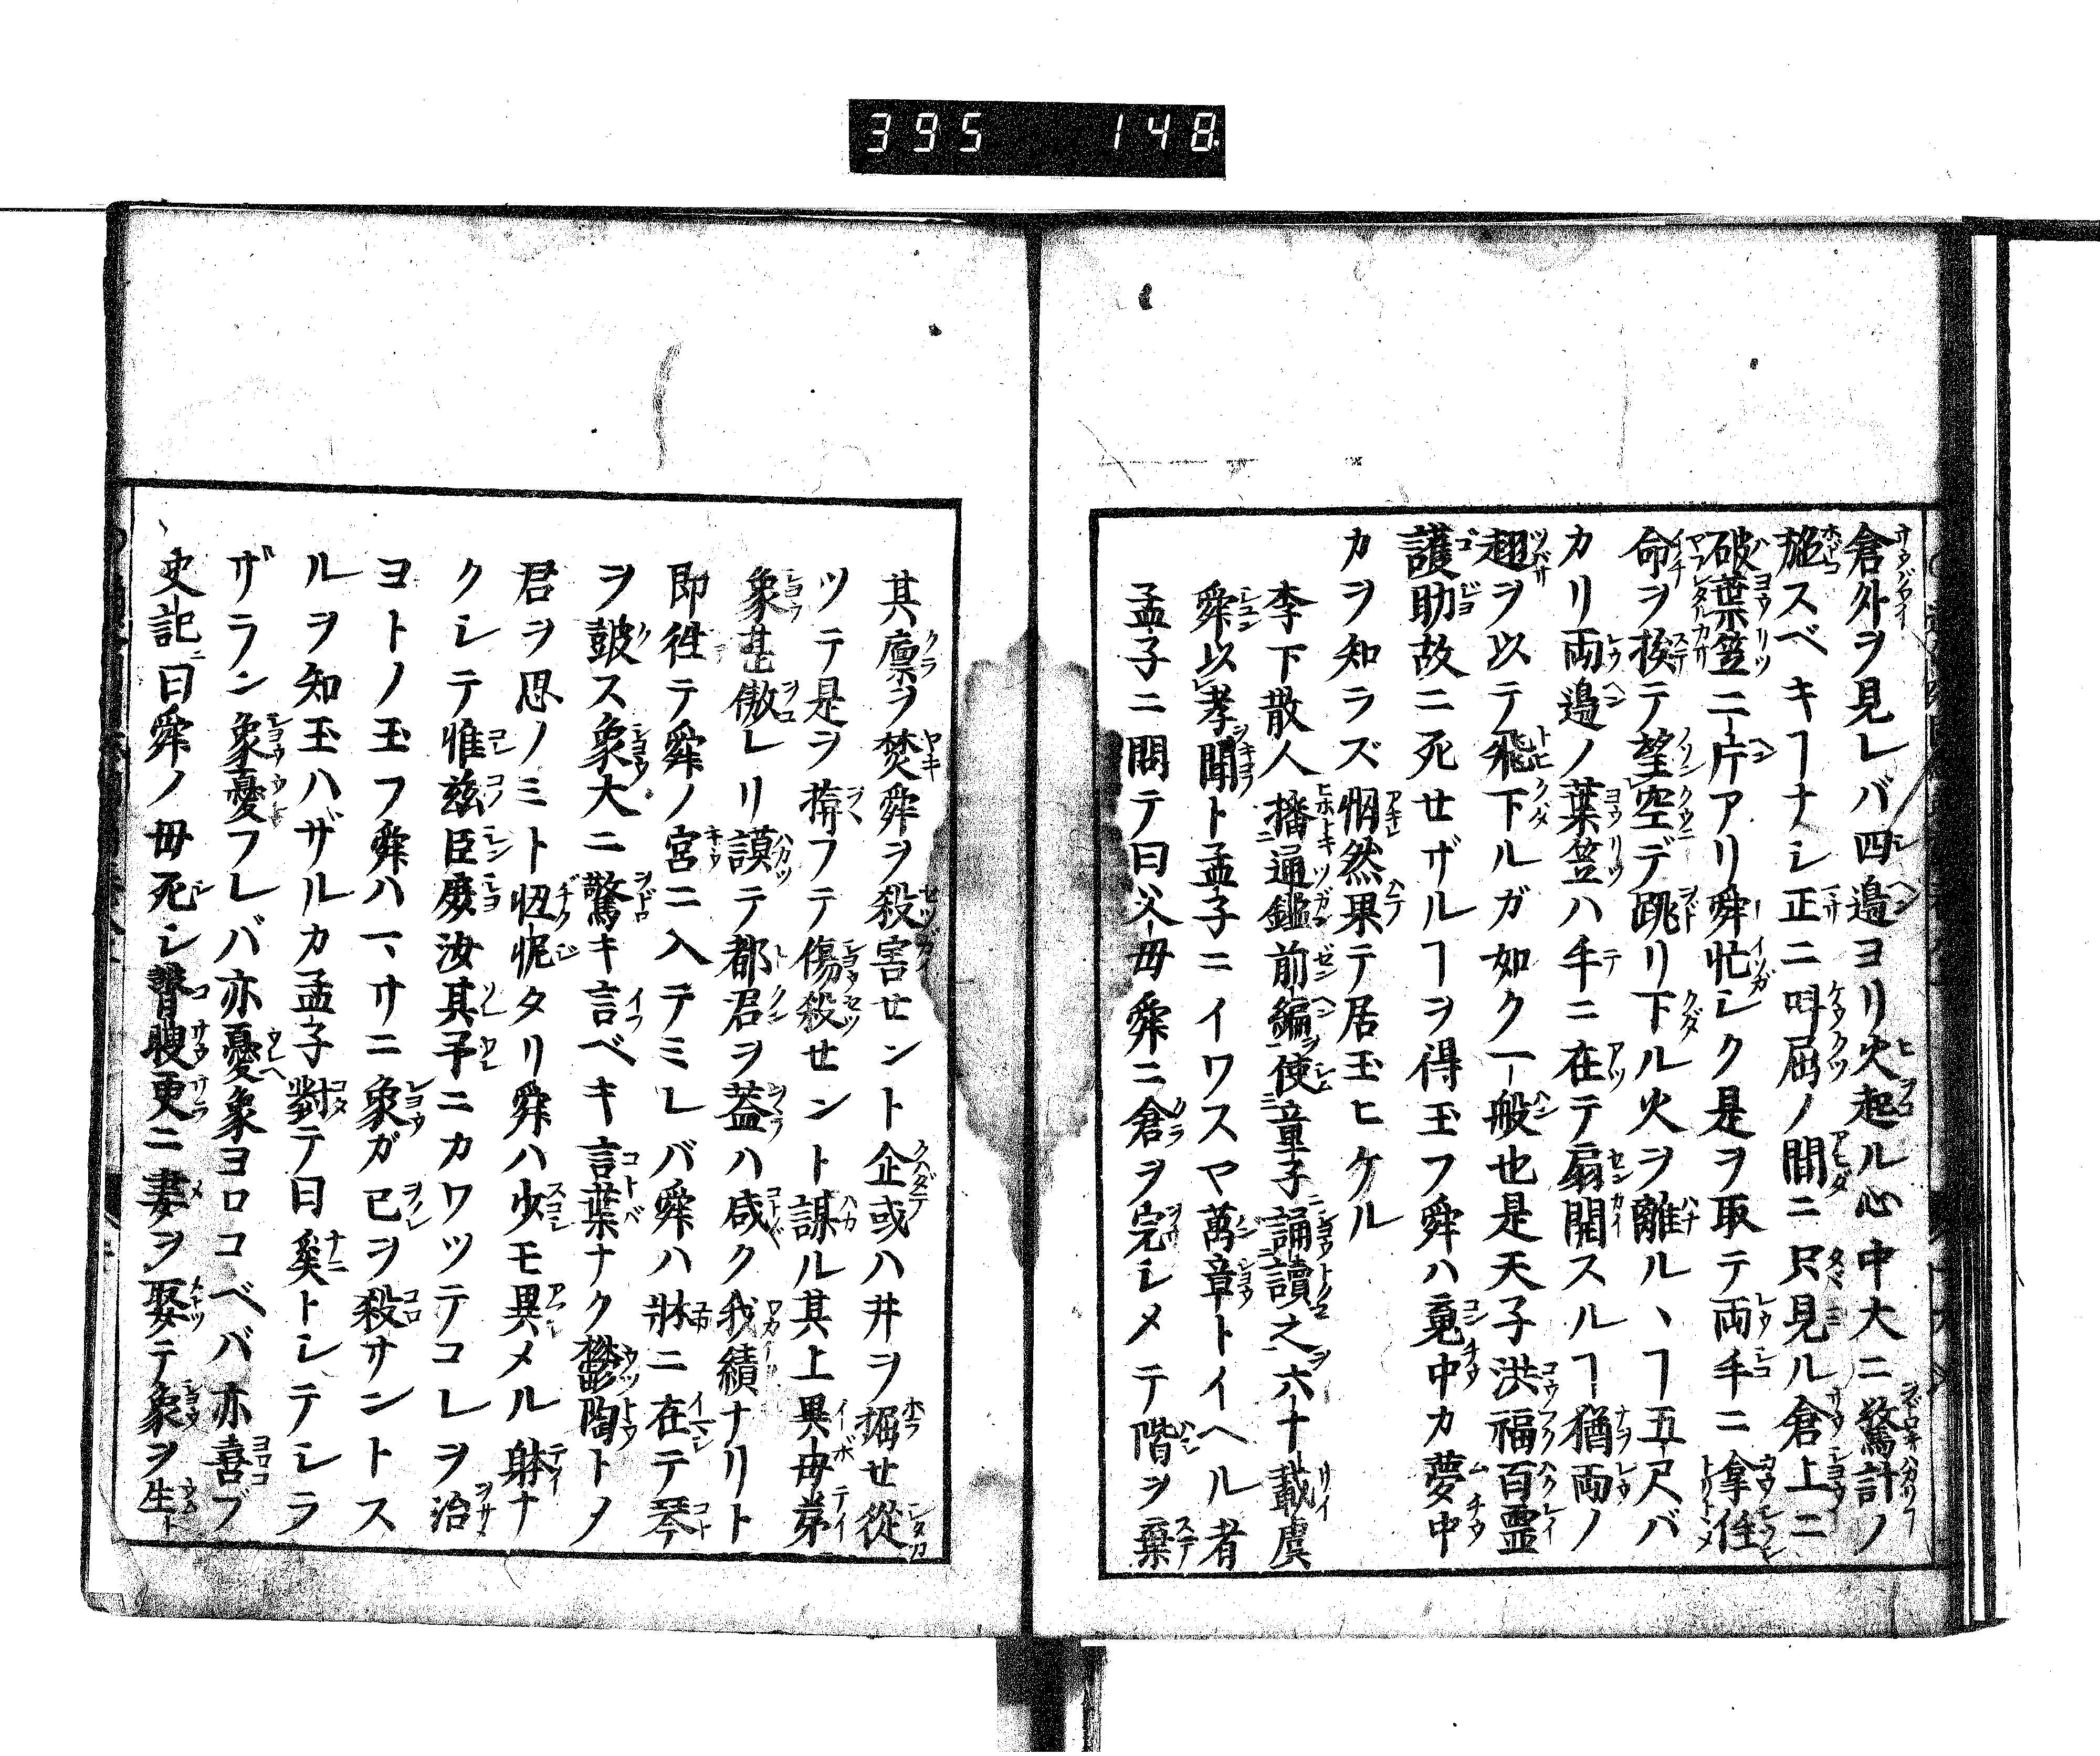 395 148
倉外ヲ見レバ四邉ヨリ火起ル心中大ニ驚計ノ
施スベキヿナシ正ニ呌屈ノ間ニ只見ル倉上ニ
破葉笠二片アリ舜忙シク是ヲ取テ両手ニ拿住
命ヲ挨テ望空デ跳リ下ル火ヲ離ルヽヿ五尺バ
カリ両邉ノ葉笠ハ手ニ在テ扇開スルヿ猶両ノ
翅ヲ以テ飛下ルガ如ク一般也是天子洪福百霊
護助故ニ死セザルヿヲ得玉フ舜ハ䰟中カ夢中
カヲ知ラズ惘然果テ居玉ヒケル
李下散人播通鑑前編使章子誦讀之六十載虞
舜以孝聞ト孟子ニイワスヤ萬章トイヘル者
孟子ニ問テ曰父母舜ニ倉ヲ完シメテ階ヲ棄
其廩ヲ焚舜ヲ殺害せント企或ハ井ヲ掘せ從
ツテ是ヲ揜フテ傷殺せント謀ル其上異母弟
象甚傲レリ謨テ都君ヲ蓋ハ咸ク我績ナリト
即徃テ舜ノ宮ニ入テミレバ舜ハ牀ニ在テ琴
ヲ皷ス象大ニ驚キ言ベキ言葉ナク欝陶トメ
君ヲ思ノミト忸怩タリ舜ハ少モ異メル躰ナ
クシテ惟茲臣庶汝其予ニカワツテコレヲ治
ヨトノ玉フ舜ハ一ヽサニ象ガ已ヲ殺サントス
ルヲ知玉ハザルカ孟子對テ曰奚トシテシラ
ザラン象憂フレバ亦憂象ヨロコベバ亦喜ブ
史記ニ曰舜ノ母死シ瞽瞍更ニ妻ヲ娶テ象ヲ生ト